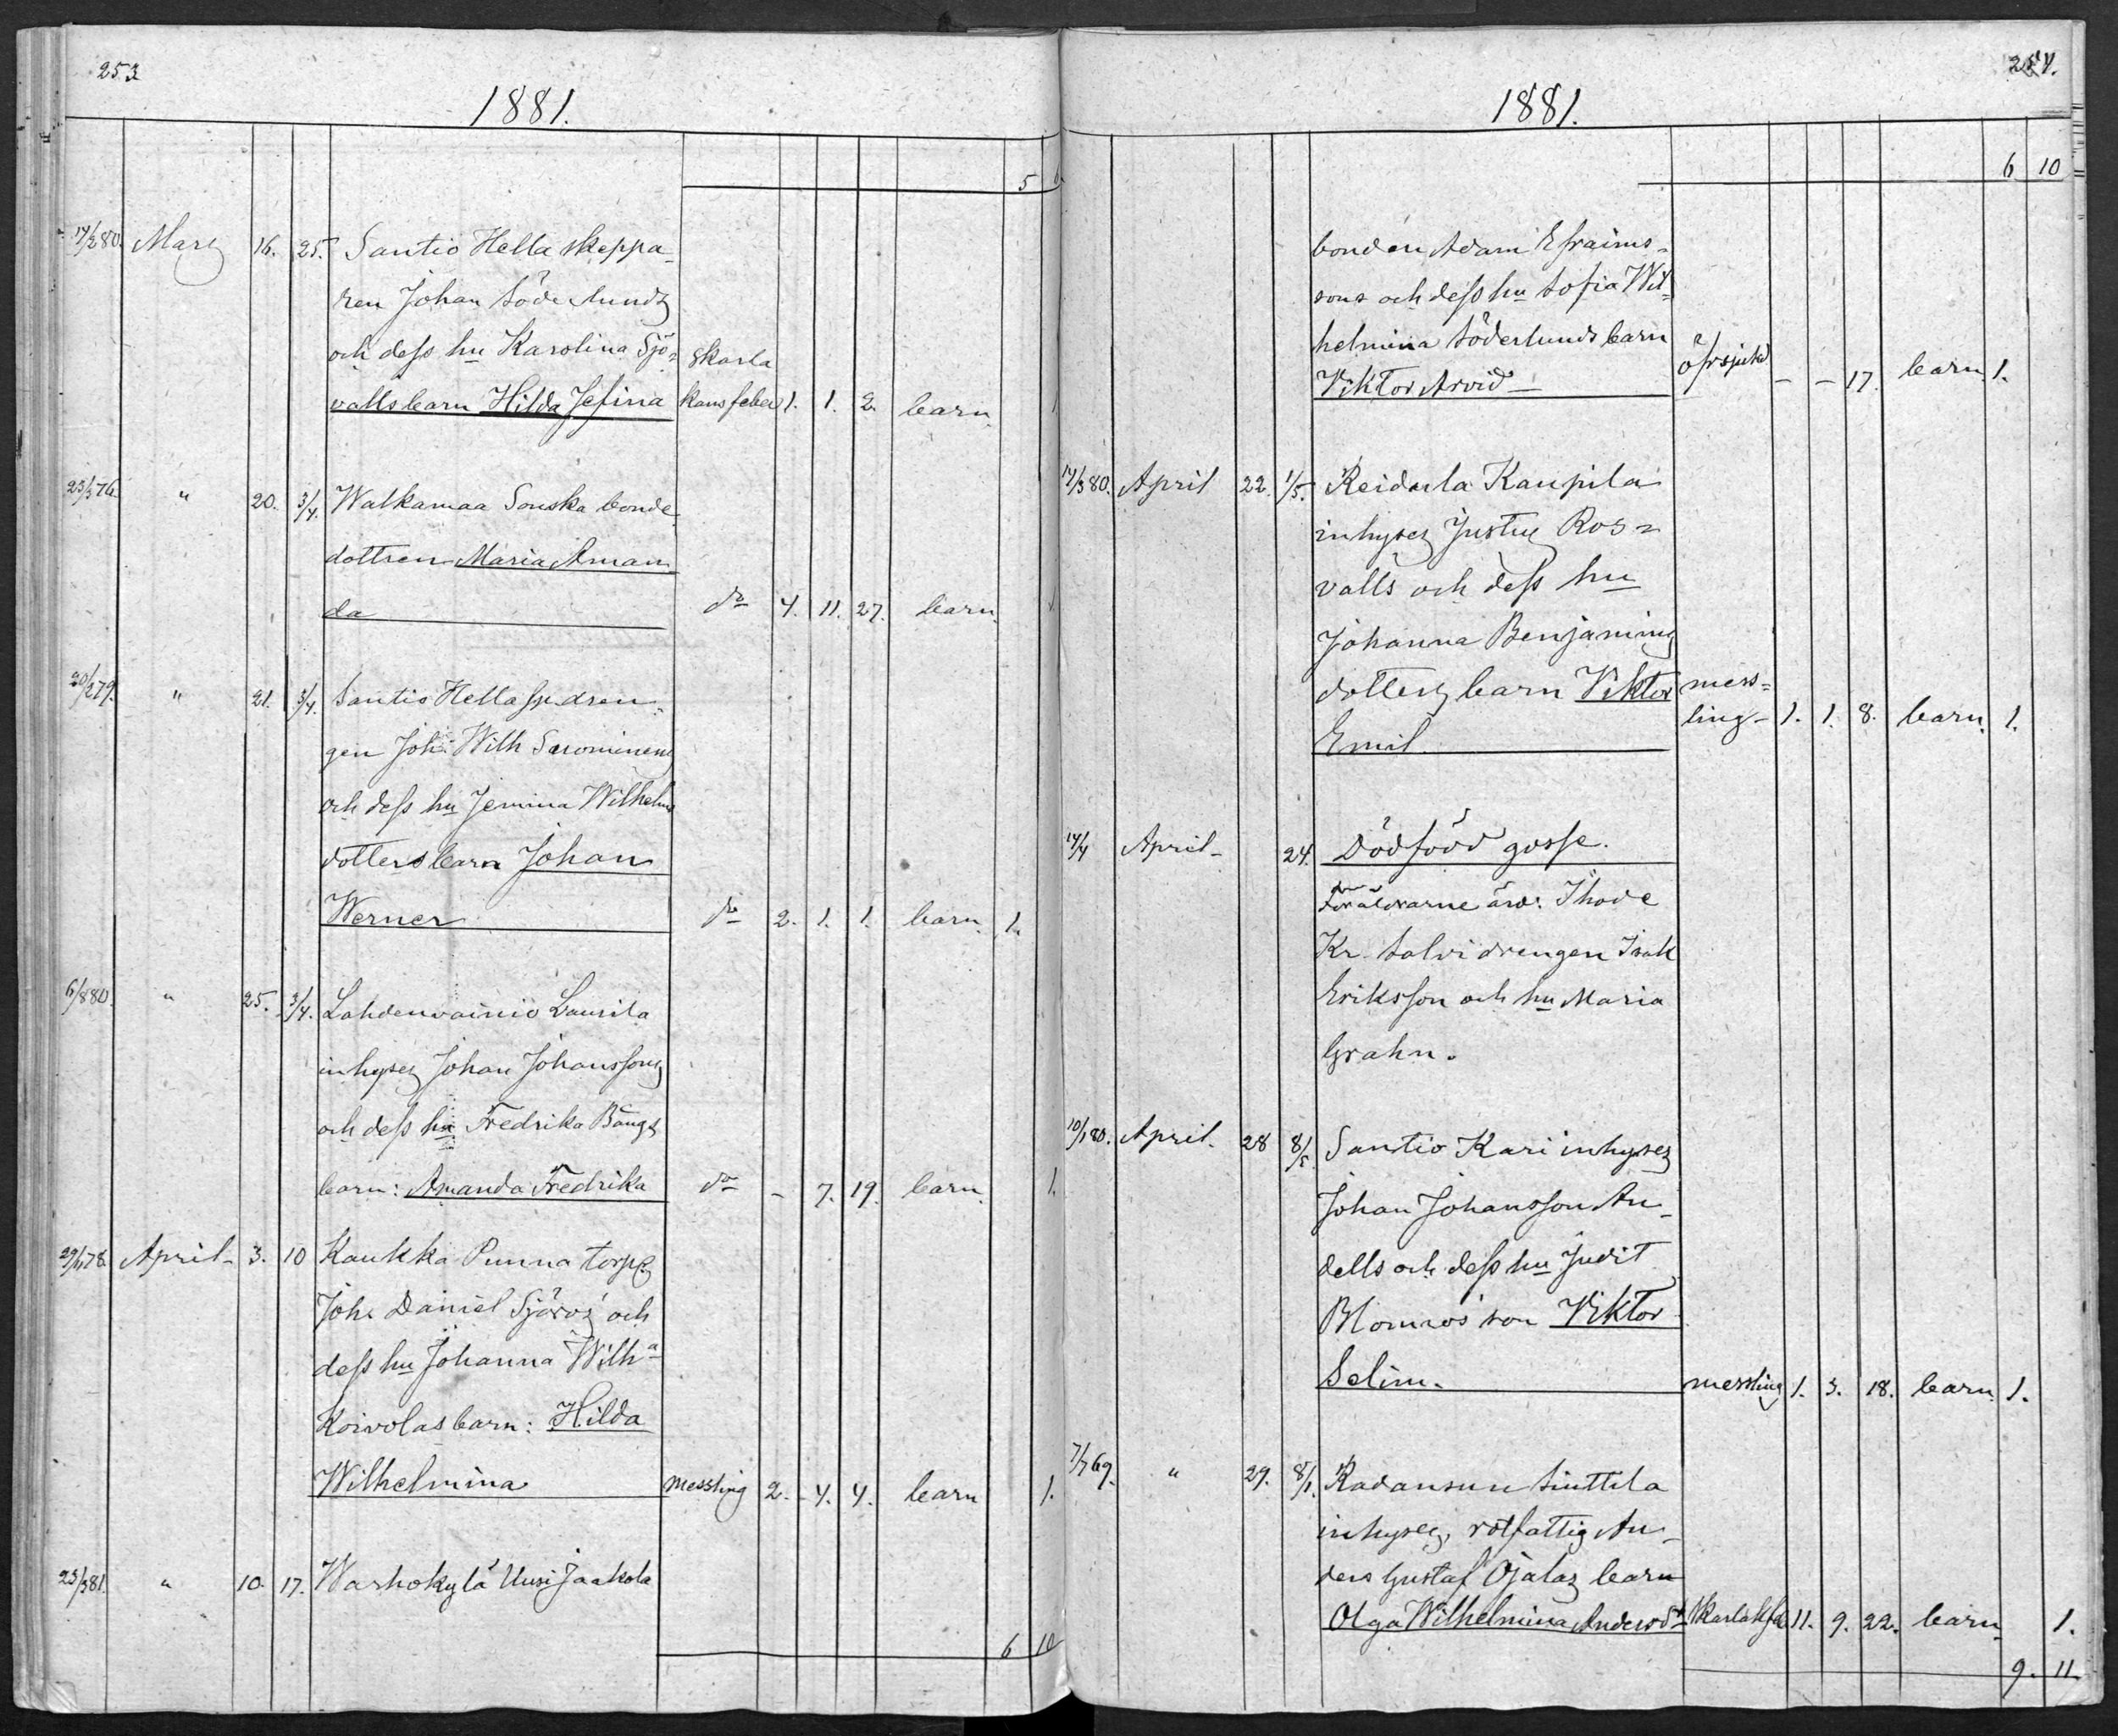 253
1881.
5 6
14/2 80. Mars 16. 25. Santio Hella skeppa-
ren Johan Söderlunds
och dess hu Karolina Sjö- Skarla
valls barn Hilda Jefina kans feber 1. 1. 2. barn 1
23/3 76. " 20. 3/4. Walkamaa Sonska bonde
dottren Maria Aman
da do 4. 11. 27. barn 1
20/2 79. " 21. 3/4. Santio Hella sp. dren-
gen Joh: Wilh Suominens
och dess hu Jemina Wilhelms
dotters barn Johan
Werner do 2. 1. 1. barn 1.
6/8 80. " 25. 3/4. Lahdenvainio Laurila
inhyses Johan Johanssons
och dess hu Fredrika Bångs
barn: Amanda Fredrika do - 7. 19. barn 1.
29/11 78. April 3. 10 Kaukka Punna torp.
Joh. Daniel Sjöros och
dess hu Johanna Wilha
Koivolas barn: Hilda
Wilhelmina messling 2. 4. 4. barn 1.
23/3 81. " 10. 17. Warhokylä Uusi Jaakola
6 10
254.
1881.
6 10
bonden Adam Efraims-
sons och dess hu Sofia Wil-
helmina Söderlunds barn
Viktor Arvid öfsjukd - - 17. barn 1.
14/3 80. April 22. 1/5. Reidarla Kaupila
inhyses Justus Ros-
valls och dess hu
Johanna Benjamins
dotters barn Viktor mess-
Emil. ling - 1. 1. 8. barn 1.
14/4 April - 24. Dödfödd gosse.
Föräldrarne äro: Ihode
Kr. Salvi drengen Isak
Eriksson och hu Maria
Grahn.
10/1 80. April. 28 8/5 Santio Kari inhyses
Johan Johansson An-
dells och dess hu Judit
Blomros son Viktor
Selim. messling 1. 3. 18. barn 1.
7/7 69. " 29. 8/5. Radansuu Sinttila
inhyses, rotfattig An-
ders Gustaf Ojalas barn
Olga Wilhelmina Andersdr Skarlakfeb 11. 9. 22. barn 1.
9. 11